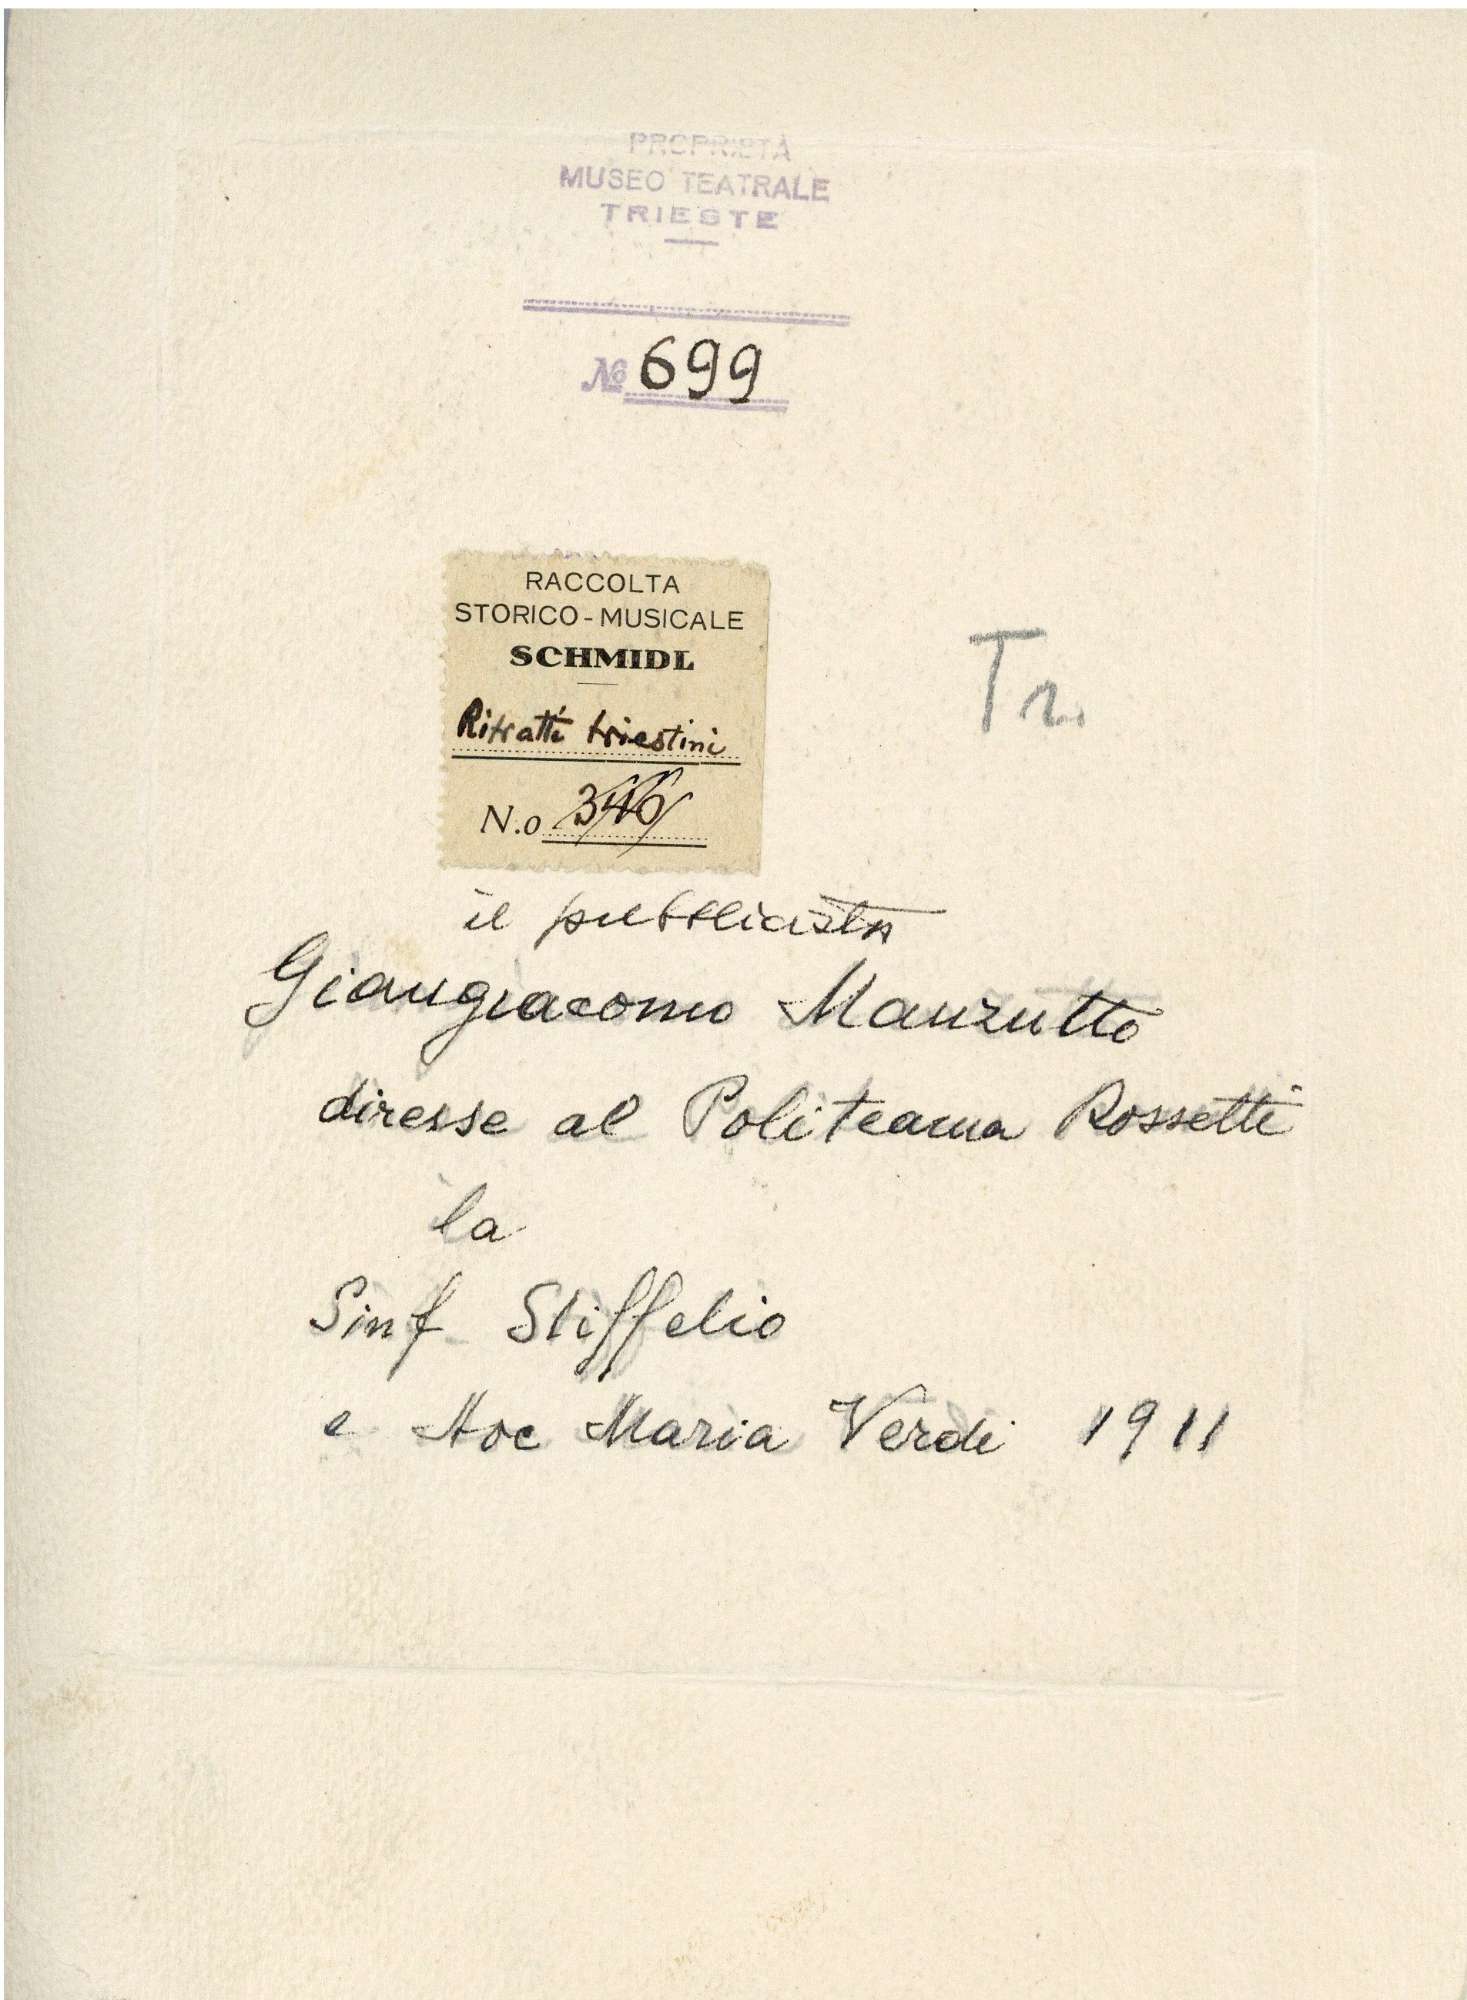 PROPRIETÀ
MUSEO TEATRALE
TRIESTE
№ 699
RACCOLTA
STORICO-MUSICALE
SCHMIDL
Ritratti triestini
N.o 346
Tr.
il pubblicista
Giangiacomo Manzutto
diresse al Politeama Rossetti
la
Sinf Stiffelio
e Ave Maria Verdi 1911